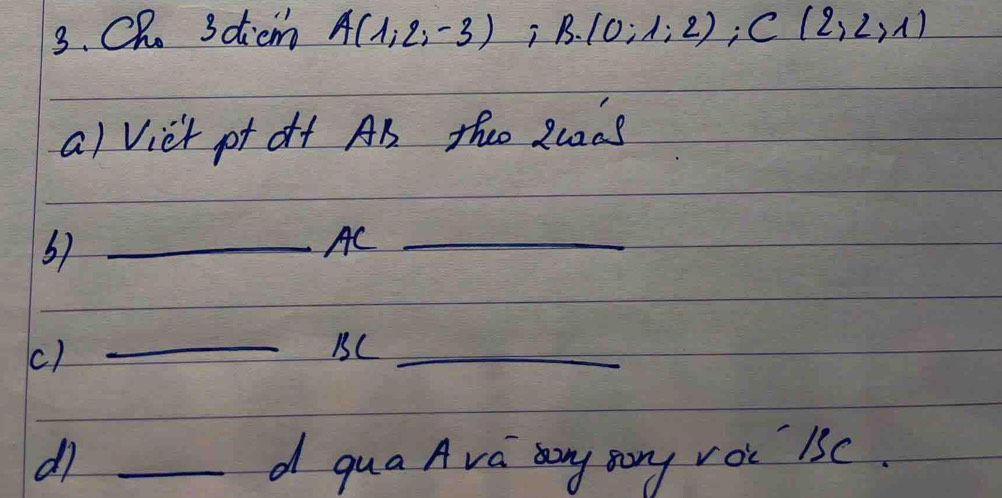 3. Cho 3 điểm A(1;2;-3) ; B.(0;1;2) ; C (2;2;1)
a) Viết pt đt AB theo 2 cách
b) ——— AC ———
c) ——— BC ———
d) ——— d qua A và song song với BC.